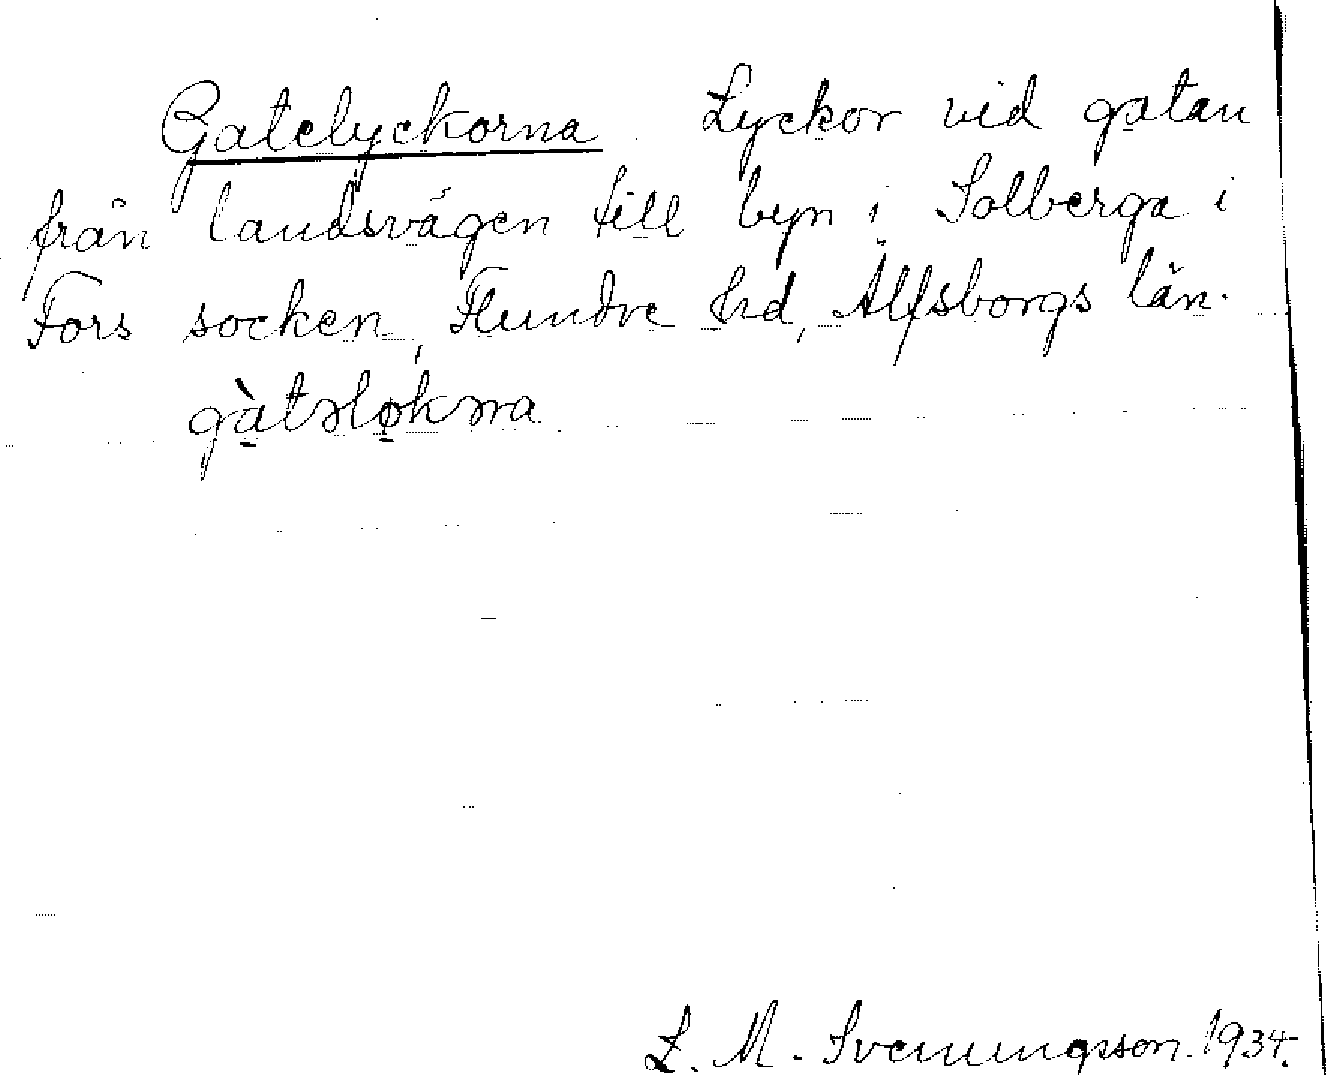 Gatelyckorna. Lyckor vid gatan
från landsvägen till byn i Solberga i
Fors socken, Flundre hd, Älfsborgs län.
gàtəløkəṇa
L. M. Svenungsson. 1934.